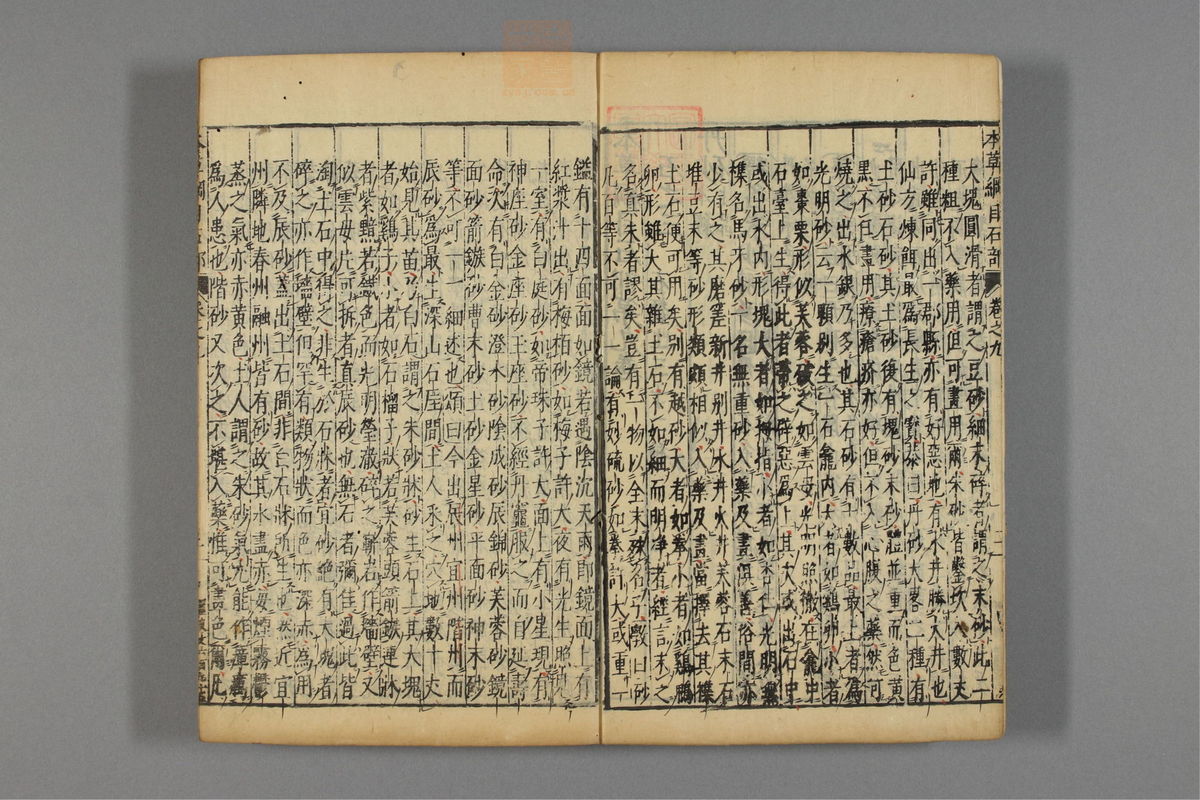 本草綱目石部 卷之九 二
大塊圓滑者謂之豆砂細末碎者謂之末砂此二
種粗不入藥用但可畫用爾采砂皆鑿坎入數丈
許雖同出一郡縣亦有好惡地有水井勝火井也
仙方煉餌最爲長生之寶 曰丹砂大畧二種有
土砂石砂其土砂復有塊砂末砂體並重而色黃
黑不任畫用療瘡疥亦好但不入心腹之藥然可
燒之出水銀乃多也其石砂有十數品最上者爲
光明砂云一顆別生一石龕內大者如鷄卵小者
如棗栗形似芙蓉破之如雲母光明照徹在龕中
石臺上生得此者帶之辟惡爲上其次或出石中
或出水內形塊大者如拇指小者如杏仁光明無
襍名馬牙砂一名無重砂入藥及畫俱善俗間亦
少有之其磨嵯新井別井水井火井芙蓉石末石
堆豆末等砂形類頗相似入藥及畫當擇去其襍
土石便可用矣別有越砂大者如拳小者如鷄鴨
卵形雖大其雜土石不如細而明淨者經言末之
名眞朱者謬矣豈有一物以全末殊名乎 斅曰砂
凡百等不可一一論有妙硫砂如拳許大或重一
鎰有十四面面如鏡若遇陰沉天雨即鏡面上有
紅漿汁出有梅栢砂如梅子許大夜有光生照見
一室有白庭砂如帝珠子許大面上有小星現有
神座砂金座砂玉座砂不經丹竈服之而自延壽
命次有白金砂澄水砂陰成砂辰錦砂芙蓉砂鏡
面砂箭鏃砂曹末砂土砂金星砂平面砂神末砂
等不可一一細述也 頌曰今出辰州宜州階州而
辰砂爲最生深山石崖間土人采之穴地數十丈
始見其苗乃白石謂之朱砂牀砂生石上其大塊
者如鷄子小者如石榴子狀若芙蓉頭箭鏃連牀
者紫黯若鐵色而光明瑩澈碎之嶄岩作牆壁又
似雲母片可拆者眞辰砂也無石者彌佳過此皆
淘土石中得之非生於石牀者宜砂絶有大塊者
碎之亦作牆壁但罕有類物狀而色亦深赤爲用
不及辰砂蓋出土石間非白石牀所生也然近宜
州隣地春州融州皆有砂故其水盡赤每煙霧鬱
蒸之氣亦赤黃色土人謂之朱砂氣尤能作瘴癘
爲人患也階砂又次之不堪入藥惟可畫色爾凡